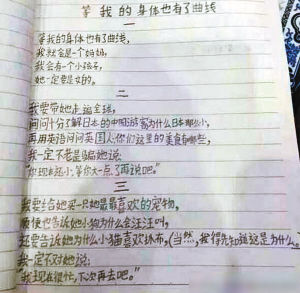 等我的身体也有了曲线
一
等我的身体也有了曲线,
我就会是一个妈妈,
我会有一个小孩子,
她一定要是女的。
二
我要带她走遍全球,
问问十分了解日本的中国游客为什么日本那么小,
再用英语问问英国人你们这里的美食有哪些,
我一定不老是骗她说:
“你现在还小,等你大一点了再说吧。”
三
我要给她买一只她最最喜欢的宠物,
顺便也告诉她小狗为什么会汪汪叫,
还要告诉她为什么小猫喜欢抓布,(当然,我得先知道这是为什么
我一定不对她说:
“我现在很忙,下次再去吧。”